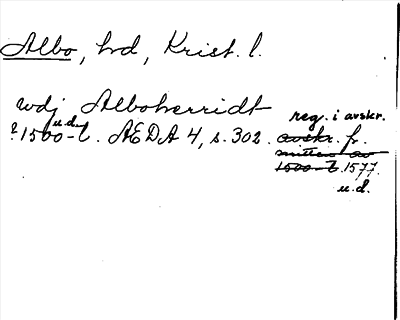 Albo, hrd, Krist. l.
wdj Alboherridt
reg. i avskr.
u.d.
? 1500-t. ÆDA 4, s. 302. avskr. fr.
mitten av
1500-t. 1577.
u.d.